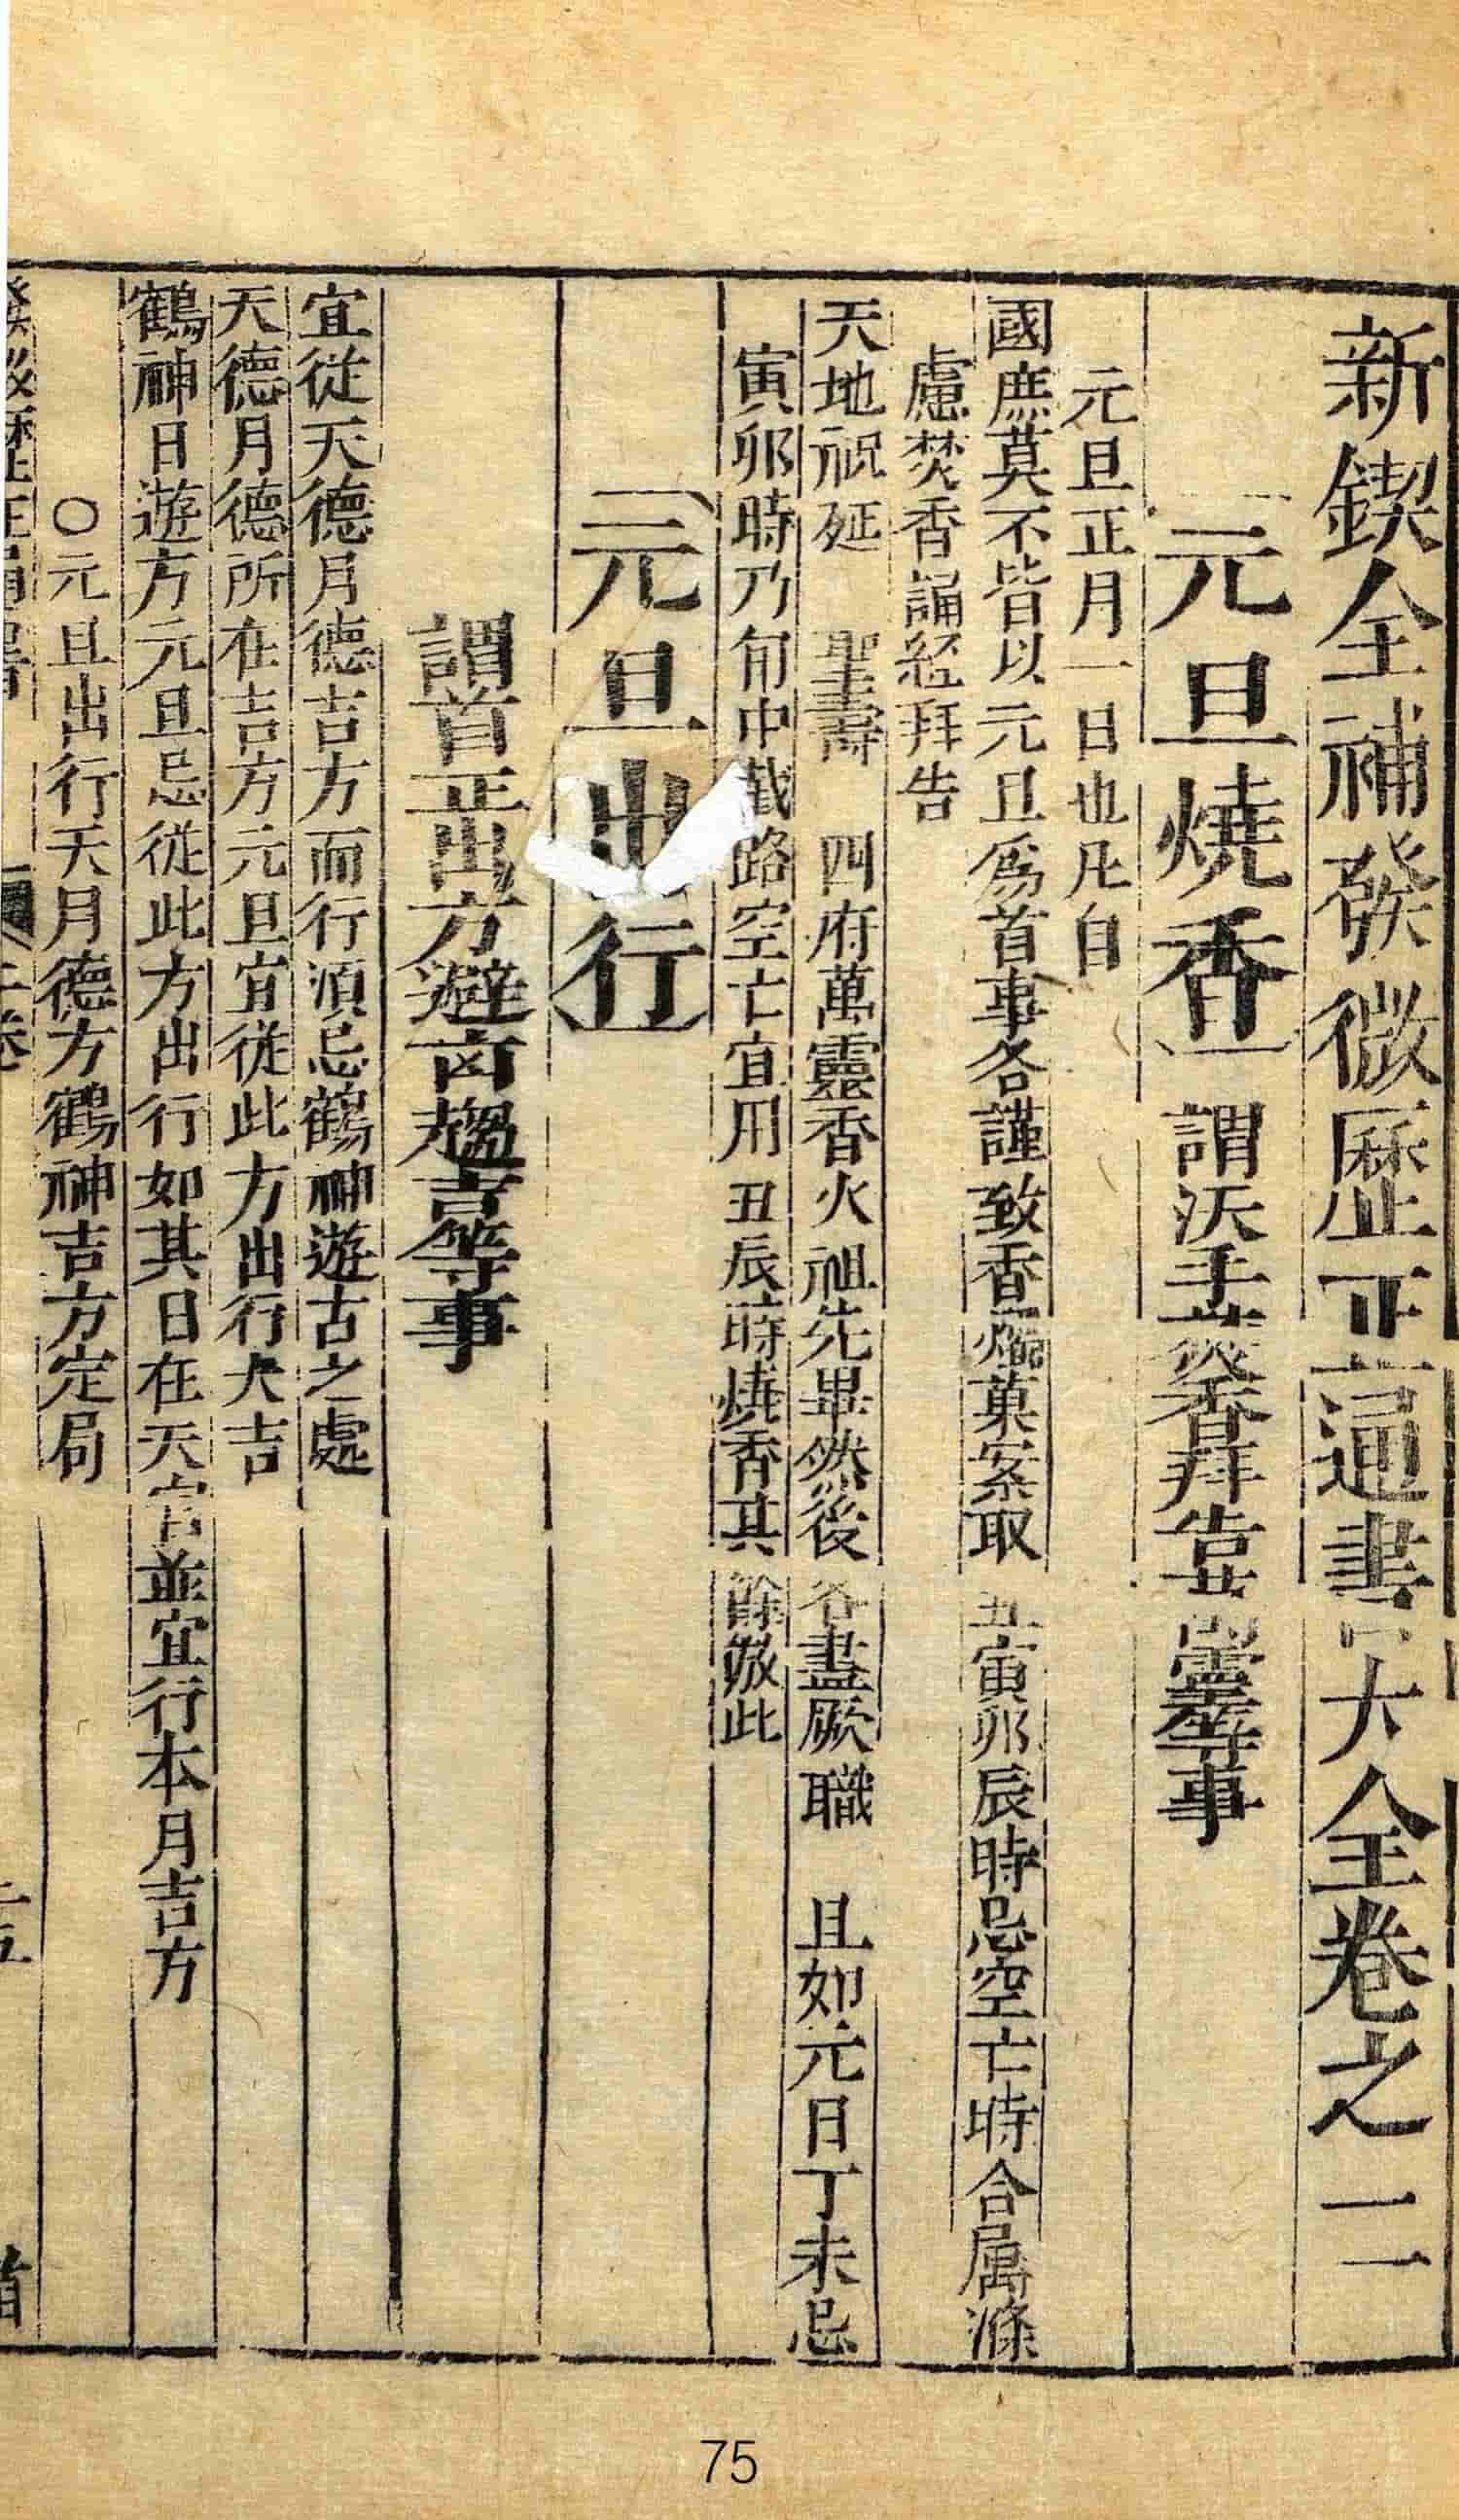 新鍥全補發微歷正通書大全卷之二
元旦燒香 謂沃手焚香拜告靈等事
元旦正月一日也凡自
國庶莫不皆以元旦爲首事各謹致香燭菓案取丑寅卯辰時忌空亡時合属滌
慮焚香誦經拜告
天地祝延 聖壽 四府萬靈香火祖先畢然後各盡厥職 且如元日丁未忌
寅卯時乃旬中截路空亡宜用丑辰時燒香其餘倣此
元旦出行
謂首正出方避凶趨吉等事
宜從天德月德吉方而行須忌鶴神遊古之處
天德月德所在吉方元旦宜從此方出行大吉
鶴神日遊方元旦忌從此方出行如其日在天宮並宜行本月吉方
〇元旦出行天月德方鶴神吉方定局
75